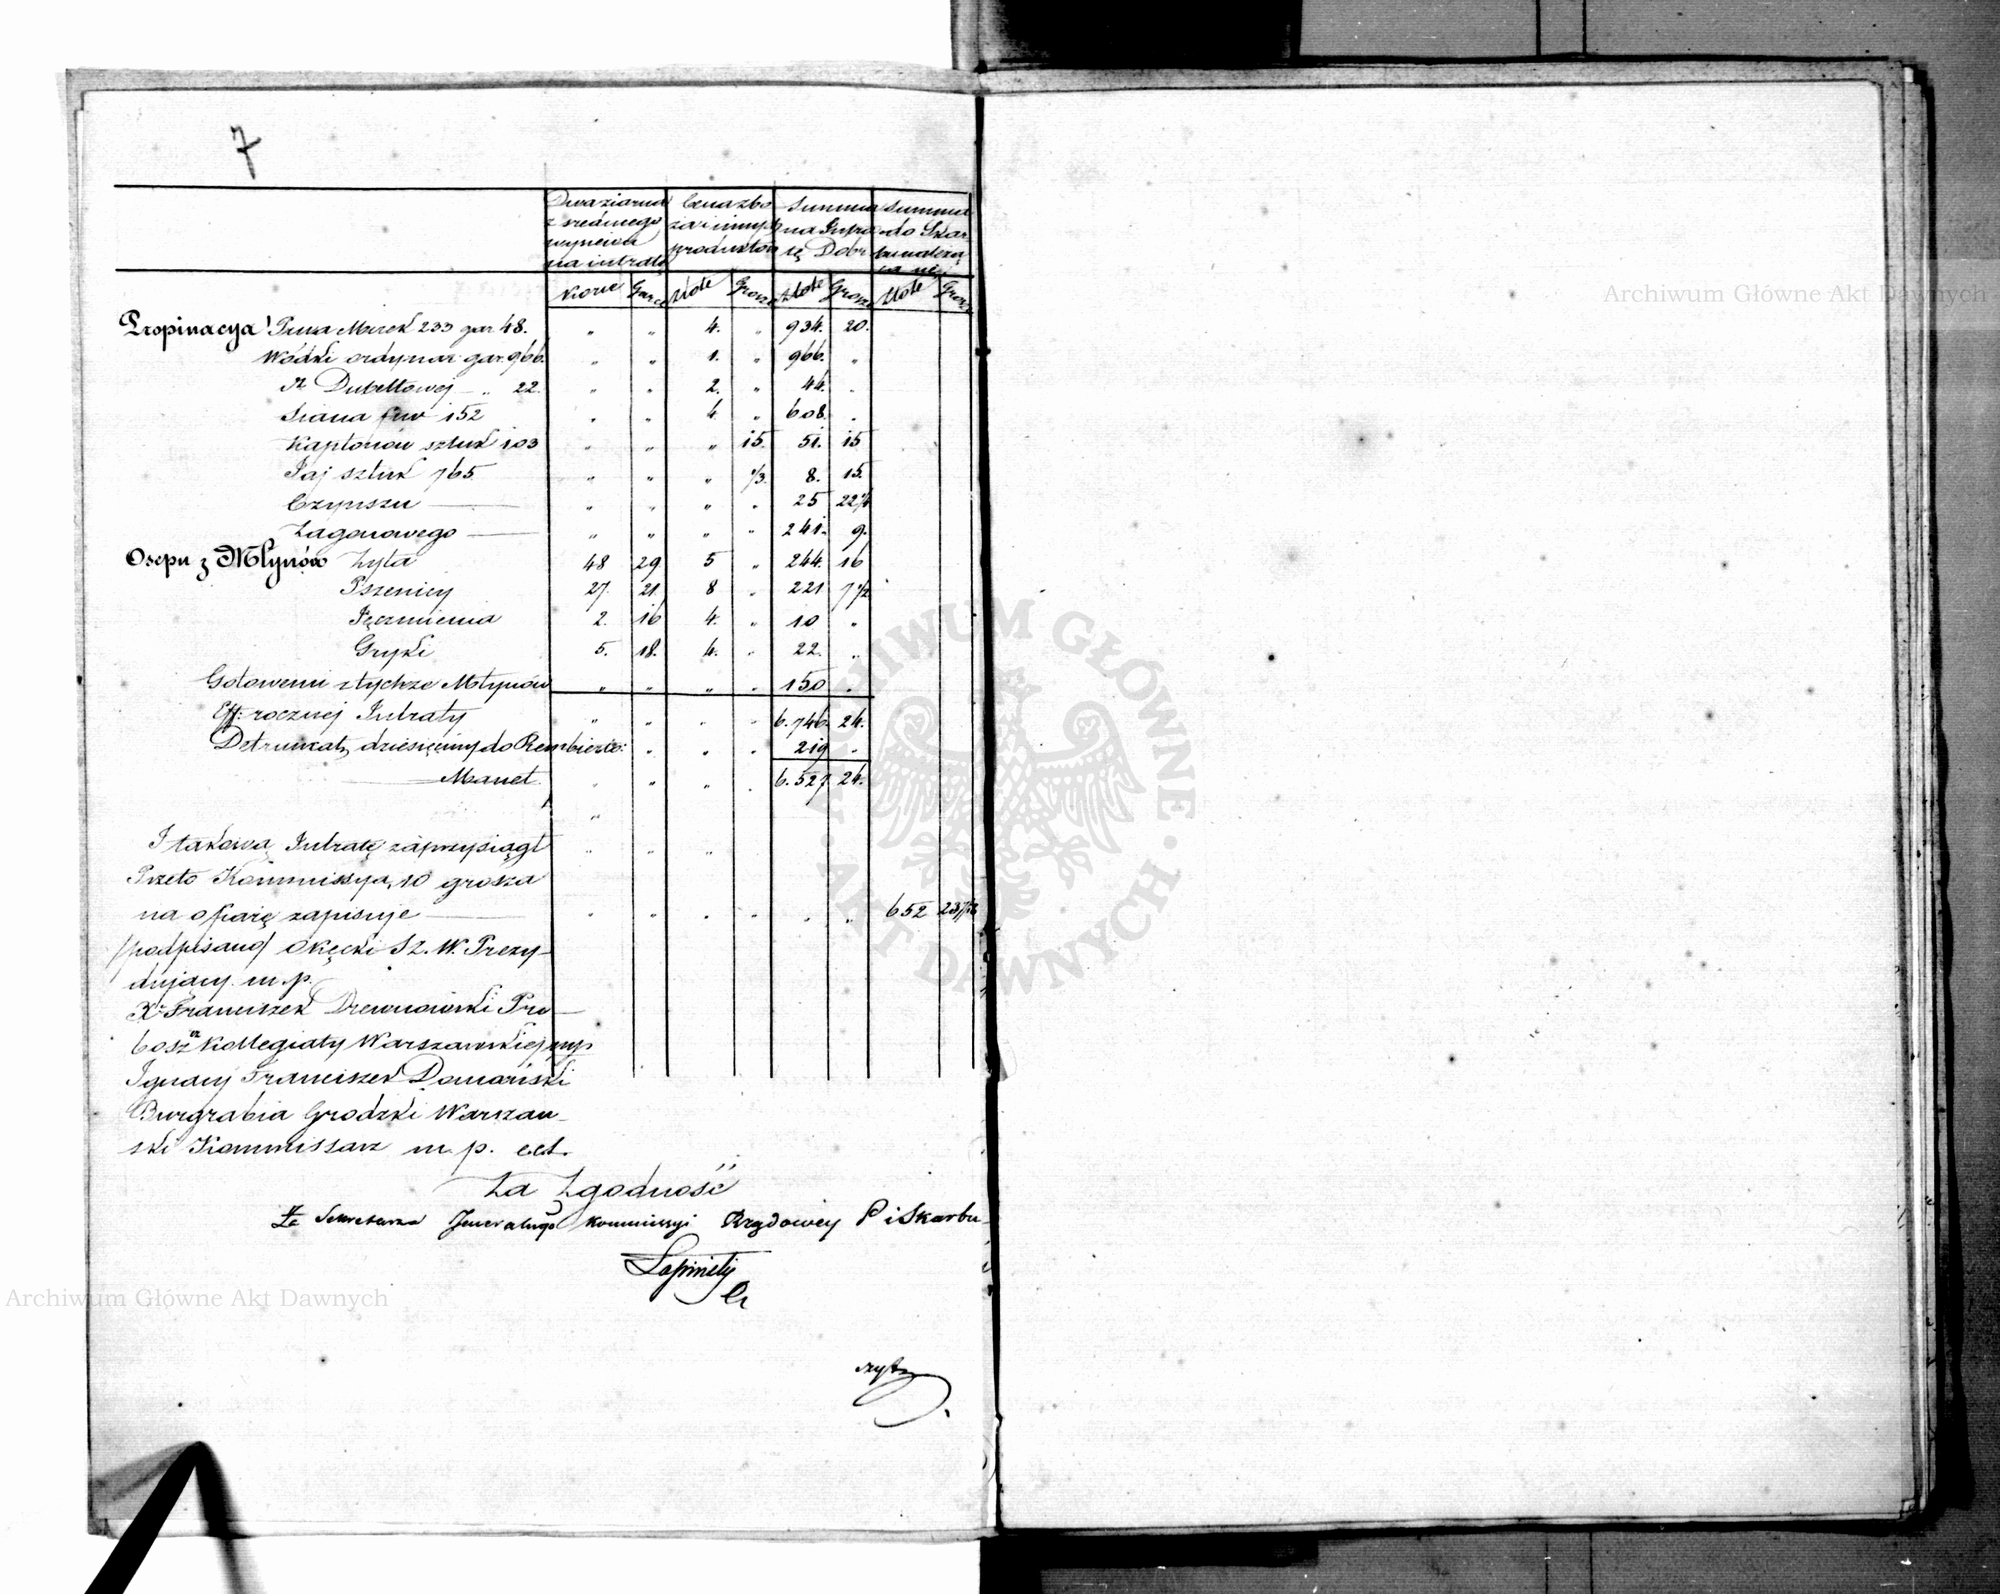 7
Dwa ziarna z średniego wysiewu na intratę | Cena zboża i innych produktów | Summa na Intratę Dobr | Summa do Skarbu należąca
Korce | Garce | Złote | Grosze | Złote | Grosze | Złote | Grosze
Propinacya! Piwa Mirek 233 gar 48. " " 4. " 934. 20.
Wódki ordynar: gar. 966. " " 1. " 966. "
Dubeltowej — " 22. " " 2. " 44. "
Siana fur 152 " " 4. " 608. "
Kapłonów sztuk 103 " " " 15. 51. 15
Jaj sztuk 765 " " " 1/3. 8. 15.
Czynszu — " " " " 25 22 1/2
Zagonowego — " " " " 241. 9.
Osepu z Młynów Żyta 48 29 5 " 244. 16
Pszenicy 27. 21. 8 " 221 7 1/2
Jęczmienia 2. 16 4. " 10 "
Gryki 5. 18. 4. " 22. "
Gotowemi z tychże Młynów " " " " 150 "
Eff: rocznej Intraty " " " " 6.746. 24.
Detruncat, dziesięciny do Rembiesz: " " " 219 "
Manet " " " " 6.527 24.
I takową Intratę zaprzysiągł
Przeto Kommissya, 10 grosza
na ofiarę zapisuje — 652 23
/podpisano/ Okęcki Sz. W. Prezy-
dujący. m.p.
X. Franciszek Drewnowski Pro-
boszcz Kollegiaty Warszawskiej mp
Ignacy Franciszek Domański
Burgrabia Grodzki Warszaw-
ski Kommissarz m. p. ect.
Za Zgodność
Za Sekretarza Jeneralnego Kommissyi Rządowey P i Skarbu
Archiwum Główne Akt Dawnych
Archiwum Główne Akt Dawnych
ARCHIWUM GŁÓWNE · AKT DAWNYCH ·